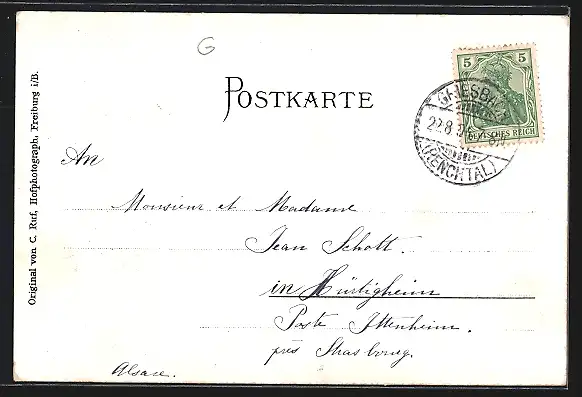 G
5 5
DEUTSCHES REICH
GRIESBACH
22.8.
(RENCHTAL)
POSTKARTE
An
Monsieur et Madame
Jean Schott.
in Hürtigheim
Poste Ittenheim.
près Strasbourg.
Alsace.
Original von C. Ruf, Hofphotograph, Freiburg i/B.